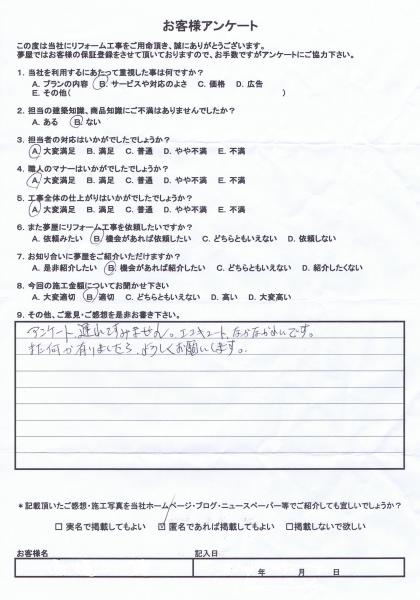 お客様アンケート
この度は当社にリフォーム工事をご用命頂き、誠にありがとうございます。
夢屋ではお客様の保証登録をさせて頂いておりますので、お手数ですがアンケートにご協力下さい。
1. 当社を利用するにあたって重視した事は何ですか?
A. プランの内容 B. サービスや対応のよさ C. 価格 D. 広告
E. その他( )
2. 担当の建築知識、商品知識にご不満はありませんでしたか?
A. ある B. ない
3. 担当者の対応はいかがでしたでしょうか?
A. 大変満足 B. 満足 C. 普通 D. やや不満 E. 不満
4. 職人のマナーはいかがでしたでしょうか?
A. 大変満足 B. 満足 C. 普通 D. やや不満 E. 不満
5. 工事全体の仕上がりはいかがでしたでしょうか?
A. 大変満足 B. 満足 C. 普通 D. やや不満 E. 不満
6. また夢屋にリフォーム工事を依頼したいですか?
A. 依頼みたい B. 機会があれば依頼したい C. どちらともいえない D. 依頼しない
7. お知り合いに夢屋をご紹介いただけますか?
A. 是非紹介したい B. 機会があれば紹介したい C. どちらともいえない D. 紹介したくない
8. 今回の施工金額についてお聞かせ下さい
A. 大変適切 B. 適切 C. どちらともいえない D. 高い D. 大変高い
9. その他、ご意見・ご感想を是非お書き下さい。
アンケート、遅れてすみません。エコキュート、なかなかいいです。
また何か有りましたら、よろしくお願いします。
*記載頂いたご感想・施工写真を当社ホームページ・ブログ・ニュースペーパー等でご紹介しても宜しいでしょうか?
□ 実名で掲載してもよい ☑ 匿名であれば掲載してもよい □掲載しないで欲しい
お客様名 記入日
年 月 日